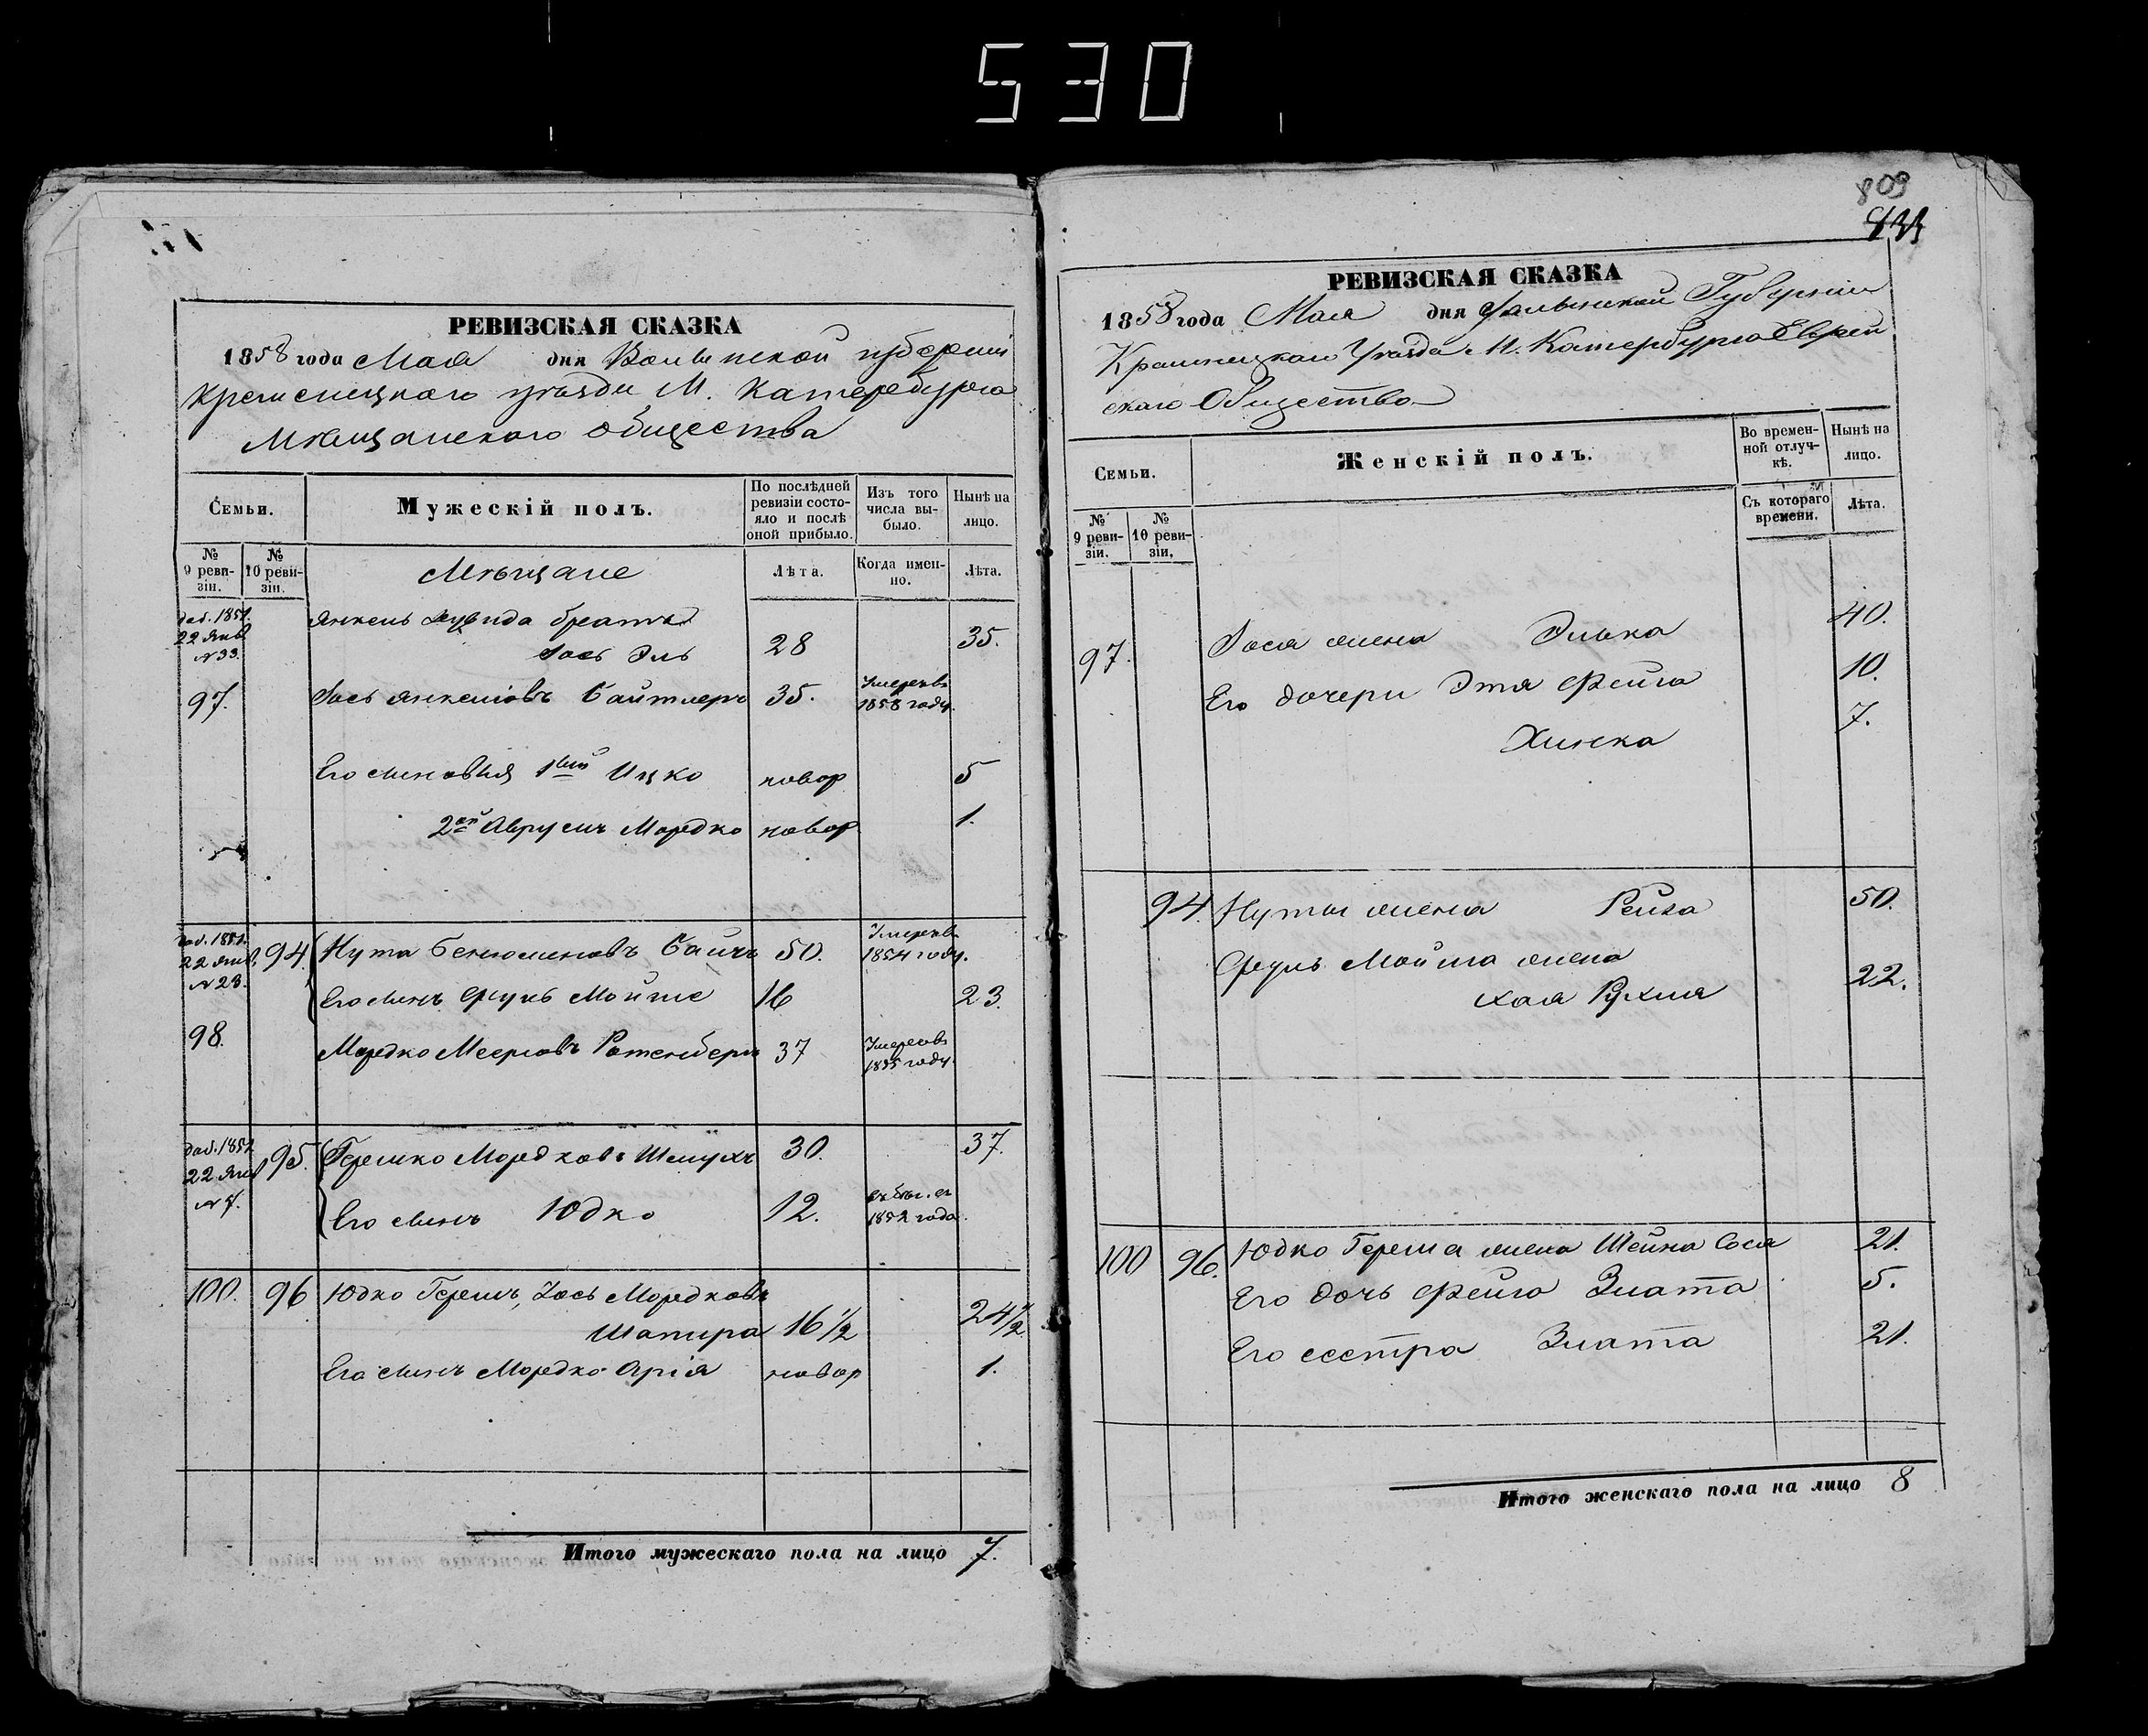 530
РЕВИЗСКАЯ СКАЗКА
1858 года Мая дня Волынской губерніи
Кременецкаго уѣзда М. Катербурга
Мѣщанскаго общества
Семьи.
Мужескій полъ.
По послѣдней ревизіи состояло и послѣ оной прибыло.
Изъ того числа выбыло.
Нынѣ на лицо.
№ 9 ревизіи.
№ 10 ревизіи.
Мѣщане
Лѣта.
Когда именно.
Лѣта.
доб. 1851.
22 Янв
№ 33.
Янкель Дувида братъ
Іось Эль 28 35.
97. Іось Янкеліовъ Байтлеръ 35. Умеръ въ 1858 году.
Его сыновья 1ый Ицко новор 5
2ой Аврумъ Мордко новор 1.
доб. 1851.
22 Янв.
№ 23.
94. Нута Бенюминовъ Байчъ 50. Умеръ въ 1854 году.
Его сынъ Фуль Мойше 16 23.
98. Мордко Мееровъ Ротенберъ 37 Умеръ въ 1855 году.
доб. 1852
22 Янв
№ 7.
95. Гершко Мордковъ Шмукъ 30. 37.
Его сынъ Юдко 12. 1852 года.
100. 96 Юдко Гершъ, Іось Мордковъ
Шапира 16 1/2 24 1/2
Его сынъ Мордко Арія новор 1.
Итого мужескаго пола на лицо 7.
809
РЕВИЗСКАЯ СКАЗКА
1858 года Мая дня Волынской Губерніи
Кременецкаго Уѣзда М. Катербурга Еврей
скаго Общества
Семьи.
Женскій полъ.
Во временной отлучкѣ.
Нынѣ на лицо.
№ 9 ревизіи.
№ 10 ревизіи.
Съ котораго времени.
Лѣта.
97. Іося жена Элька 40.
Его дочери Этя Фейга 10.
Хинка 7.
94 Нуты жена Рейза 50.
Фуль Мойша жена
Хая Рухля 22.
100 96. Юдко Герша жена Шейна Сося 21.
Его дочь Фейга Злата 5.
Его сестра Злата 21.
Итого женскаго пола на лицо 8